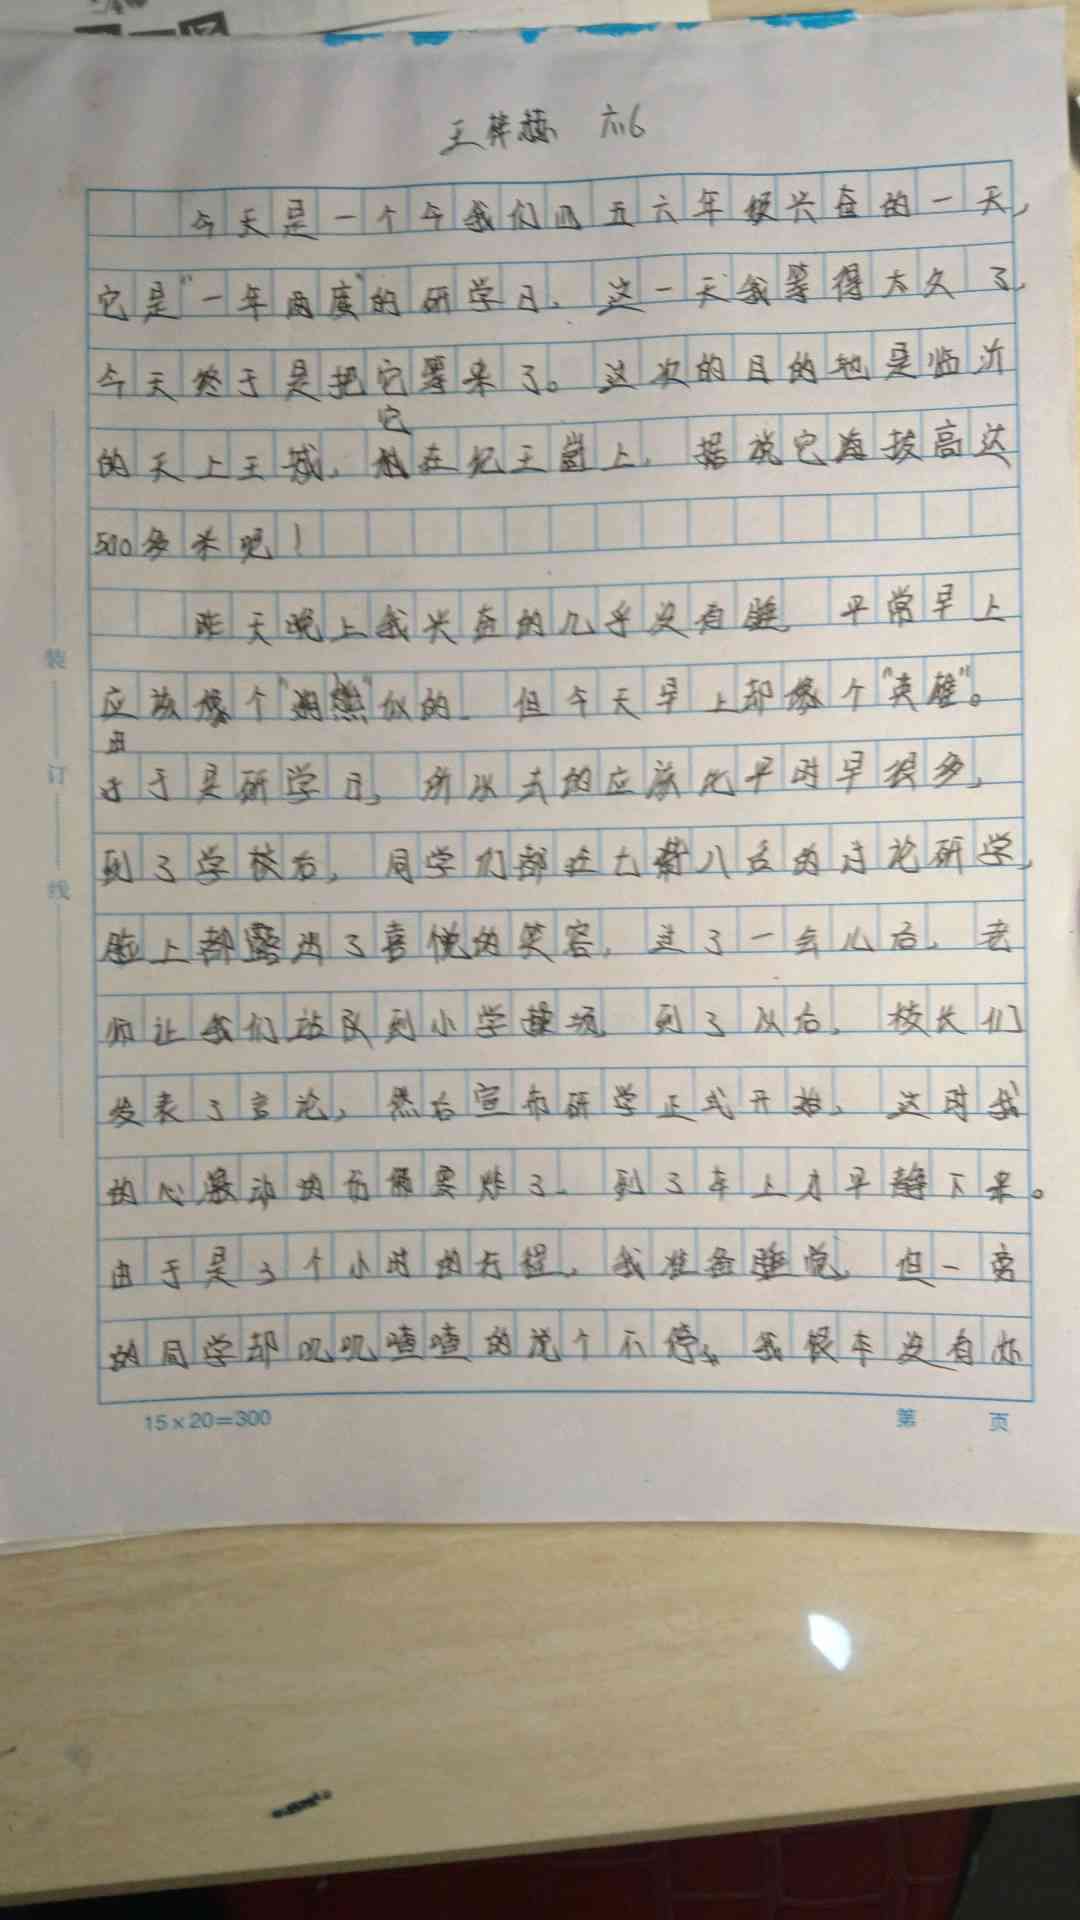 王梓 六6
今天是一个令我们四五六年级兴奋的一天,
它是"一年两度"的研学日, 这一天我等得太久了,
今天终于是把它等来了。这次的目的地是临沂
的天上王城, 它在纪王崮上, 据说它海拔高达
500多米吧!
昨天晚上我兴奋的几乎没有睡, 平常早上
应该像个"狗熊"似的, 但今天早上却像个"英雄"。
由于是研学日, 所以去的应该比平时早很多,
到了学校后, 同学们都在七嘴八舌的讨论研学,
脸上都露出了喜悦的笑容, 过了一会儿后, 老
师让我们站队到小学操场, 到了以后, 校长们
发表了言论, 然后宣布研学正式开始, 这时我
的心激动的仿佛要炸了, 到了车上才平静下来。
由于是3个小时的行程, 我准备睡觉, 但一旁
的同学却叽叽喳喳的说个不停, 我根本没有办
装 订 线
15×20=300
第 页